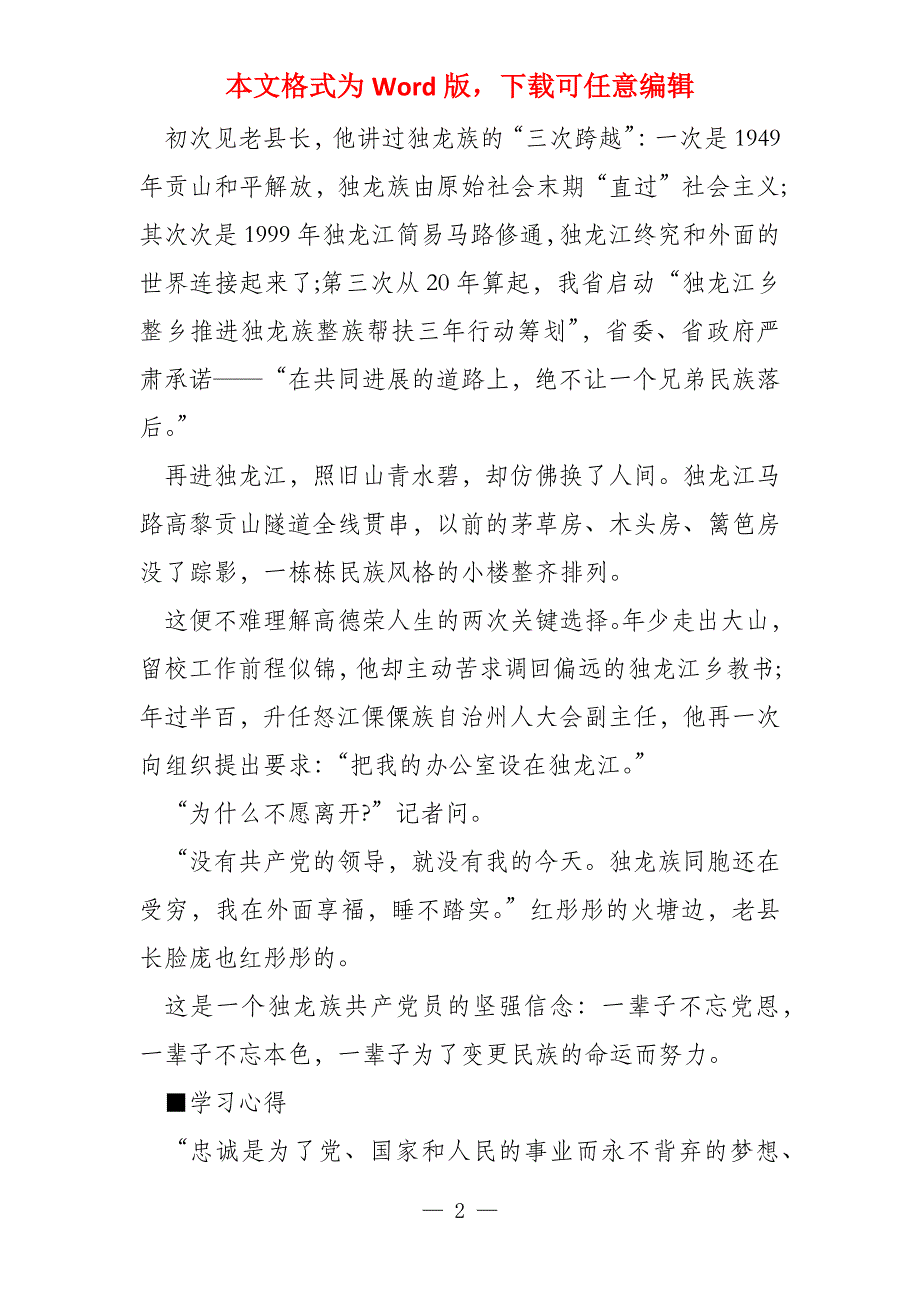 本文格式为 Word 版，下载可任意编辑
初次见老县长，他讲过独龙族的“三次跨越”：一次是 1949
年贡山和平解放，独龙族由原始社会末期“直过”社会主义;
其次次是 1999 年独龙江简易马路修通，独龙江终究和外面的
世界连接起来了;第三次从 20 年算起，我省启动“独龙江乡
整乡推进独龙族整族帮扶三年行动筹划”，省委、省政府严
肃承诺——“在共同进展的道路上，绝不让一个兄弟民族落
后。”
再进独龙江，照旧山青水碧，却仿佛换了人间。独龙江马
路高黎贡山隧道全线贯串，以前的茅草房、木头房、篱笆房
没了踪影，一栋栋民族风格的小楼整齐排列。
这便不难理解高德荣人生的两次关键选择。年少走出大山，
留校工作前程似锦，他却主动苦求调回偏远的独龙江乡教书;
年过半百，升任怒江傈僳族自治州人大会副主任，他再一次
向组织提出要求：“把我的办公室设在独龙江。”
“为什么不愿离开?”记者问。
“没有共产党的领导，就没有我的今天。独龙族同胞还在
受穷，我在外面享福，睡不踏实。”红彤彤的火塘边，老县
长脸庞也红彤彤的。
这是一个独龙族共产党员的坚强信念：一辈子不忘党恩，
一辈子不忘本色，一辈子为了变更民族的命运而努力。
■学习心得
“忠诚是为了党、国家和人民的事业而永不背弃的梦想、
— 2 —